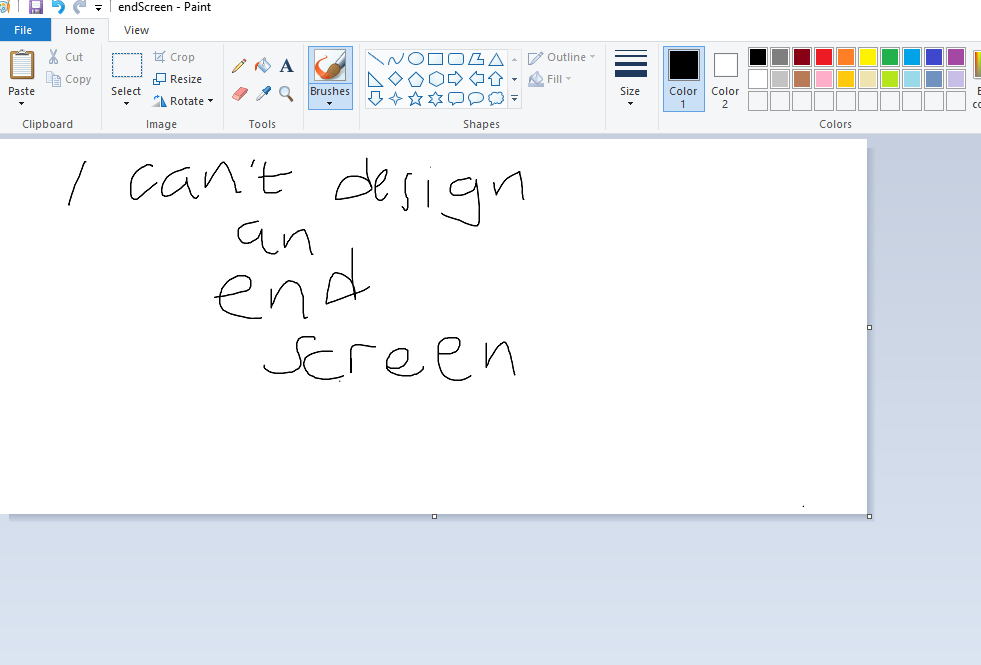 endScreen - Paint
File Home View
Paste
Cut
Copy
Clipboard
Select
Crop
Resize
Rotate
Image
A
Tools
Brushes
Shapes
Outline
Fill
Size
Color 1
Color 2
Colors
I can't design
an
end
screen